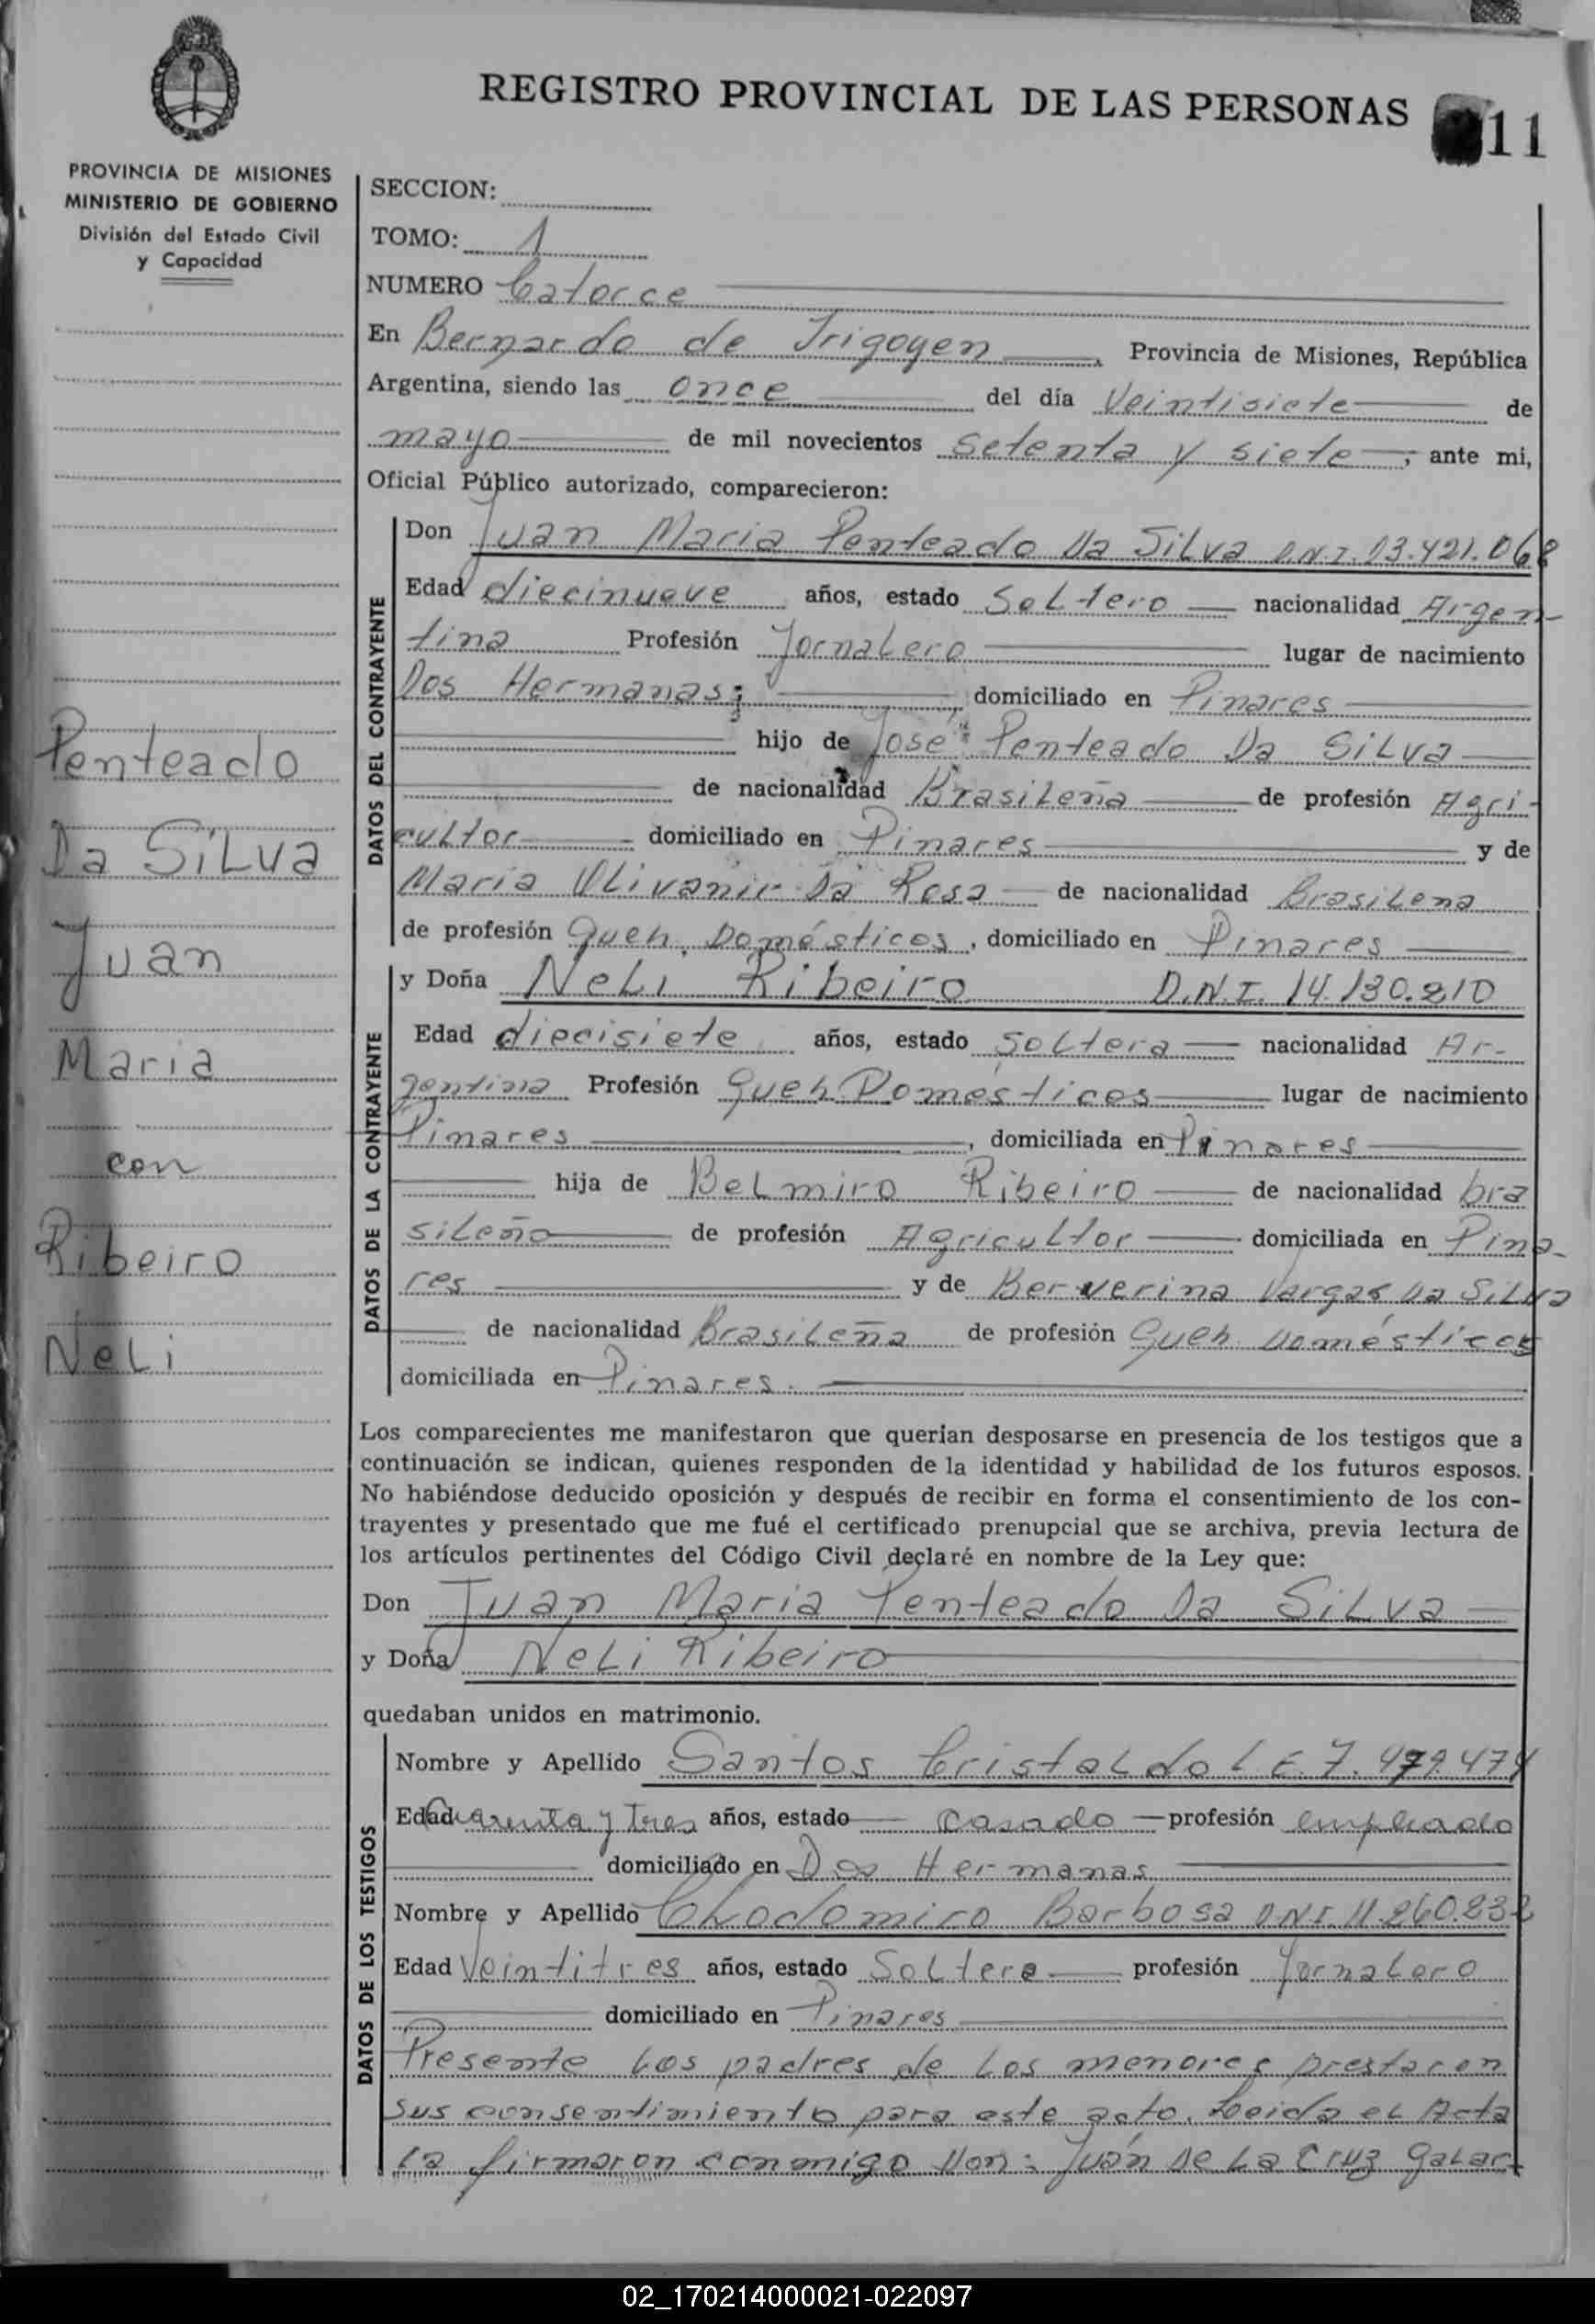 REGISTRO PROVINCIAL DE LAS PERSONAS
11
PROVINCIA DE MISIONES
MINISTERIO DE GOBIERNO
División del Estado Civil
y Capacidad
Penteado
Da Silva
Juan
Maria
con
Ribeiro
Neli
SECCION:
TOMO: 1
NUMERO Catorce
En Bernardo de Irigoyen, Provincia de Misiones, República
Argentina, siendo las once del día Veintisiete de
mayo de mil novecientos setenta y siete, ante mi,
Oficial Público autorizado, comparecieron:
DATOS DEL CONTRAYENTE
Don Juan Maria Penteado Da Silva D.N.I. 13.421.068
Edad diecinueve años, estado Soltero nacionalidad Argen-
tina Profesión Jornalero lugar de nacimiento
Dos Hermanas; domiciliado en Pinares
hijo de José Penteado Da Silva
de nacionalidad Brasileña de profesión Agri-
cultor domiciliado en Pinares y de
Maria Da Rosa de nacionalidad Brasilena
de profesión Queh. Domésticos, domiciliado en Pinares
DATOS DE LA CONTRAYENTE
y Doña Neli Ribeiro D.N.I. 14.130.210
Edad diecisiete años, estado soltera nacionalidad Ar-
gentina Profesión Queh Domésticos lugar de nacimiento
Pinares, domiciliada en Pinares
hija de Belmiro Ribeiro de nacionalidad bra
sileña de profesión Agricultor domiciliada en Pina-
res y de Berverina Vargas Da Silva
de nacionalidad Brasileña de profesión Queh Domésticos
domiciliada en Pinares.
Los comparecientes me manifestaron que querían desposarse en presencia de los testigos que a
continuación se indican, quienes responden de la identidad y habilidad de los futuros esposos.
No habiéndose deducido oposición y después de recibir en forma el consentimiento de los con-
trayentes y presentado que me fué el certificado prenupcial que se archiva, previa lectura de
los artículos pertinentes del Código Civil declaré en nombre de la Ley que:
Don Juan Maria Penteado Da Silva
y Doña Neli Ribeiro
quedaban unidos en matrimonio.
DATOS DE LOS TESTIGOS
Nombre y Apellido Santos Cristaldo L E. 7.479.474
Edad Cuarenta y tres años, estado casado profesión empleado
domiciliado en Dos Hermanas
Nombre y Apellido Clodomiro Barbosa D.N.I. 11.260.232
Edad Veintitres años, estado Soltero profesión Jornalero
domiciliado en Pinares
Presente los padres de los menores prestaron
sus consentimiento para este acto. Leida el Acta
la firmaron conmigo Don: Juan De La Cruz Galar
02_170214000021-022097